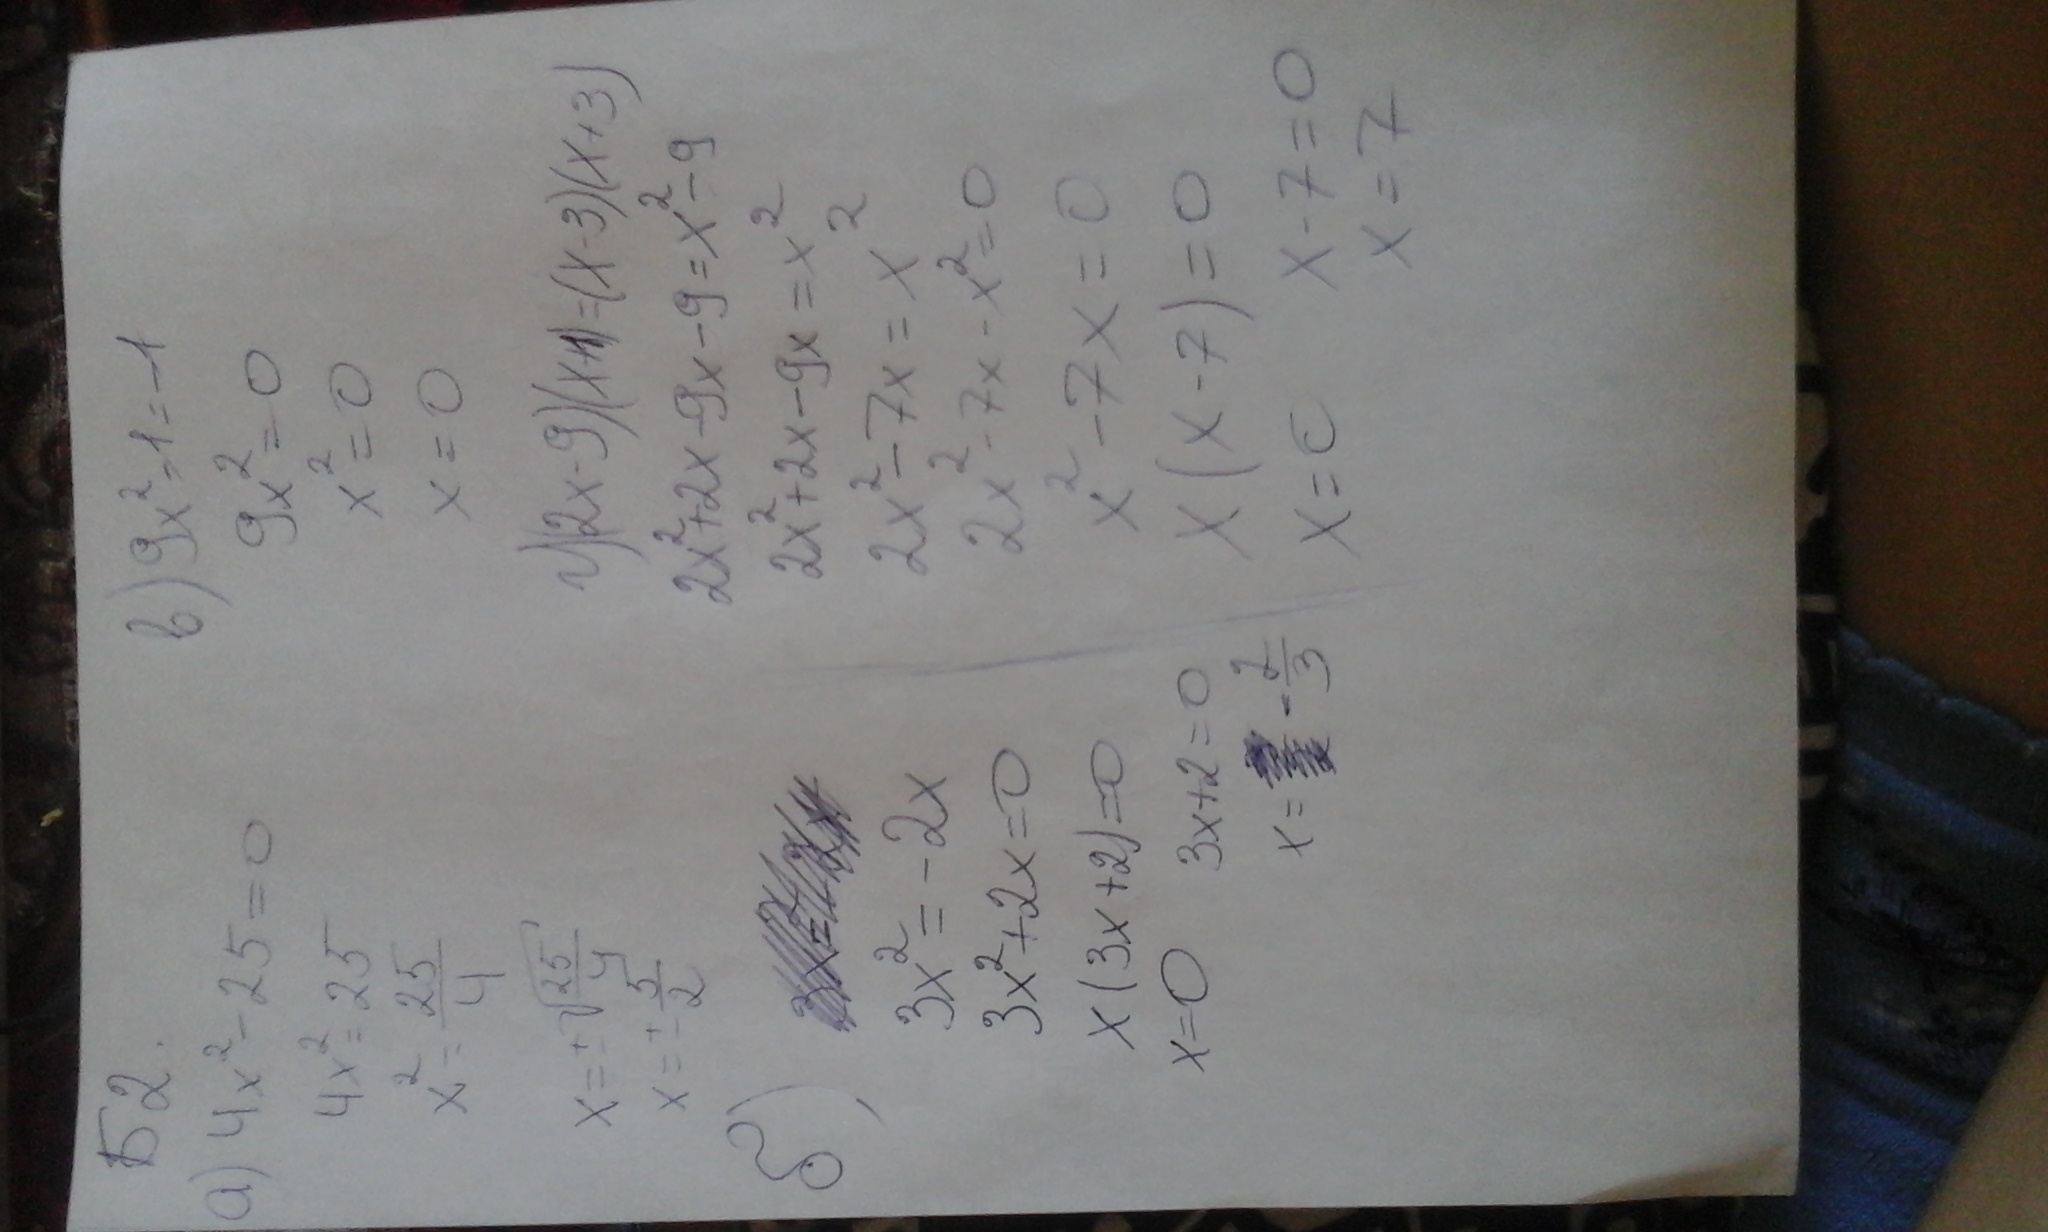 Б2.
а) 4x²-25=0
4x²=25
x²=25/4
x=±√25/4
x=±5/2
б)
3x²=-2x
3x²+2x=0
x(3x+2)=0
x=0 3x+2=0
x=-2/3
в) 9x²-1=-1
9x²=0
x²=0
x=0
г) (2x-9)(x+1)=(x-3)(x+3)
2x²+2x-9x-9=x²-9
2x²+2x-9x=x²
2x²-7x=x²
2x²-7x-x²=0
x²-7x=0
x(x-7)=0
x=0 x-7=0
x=7